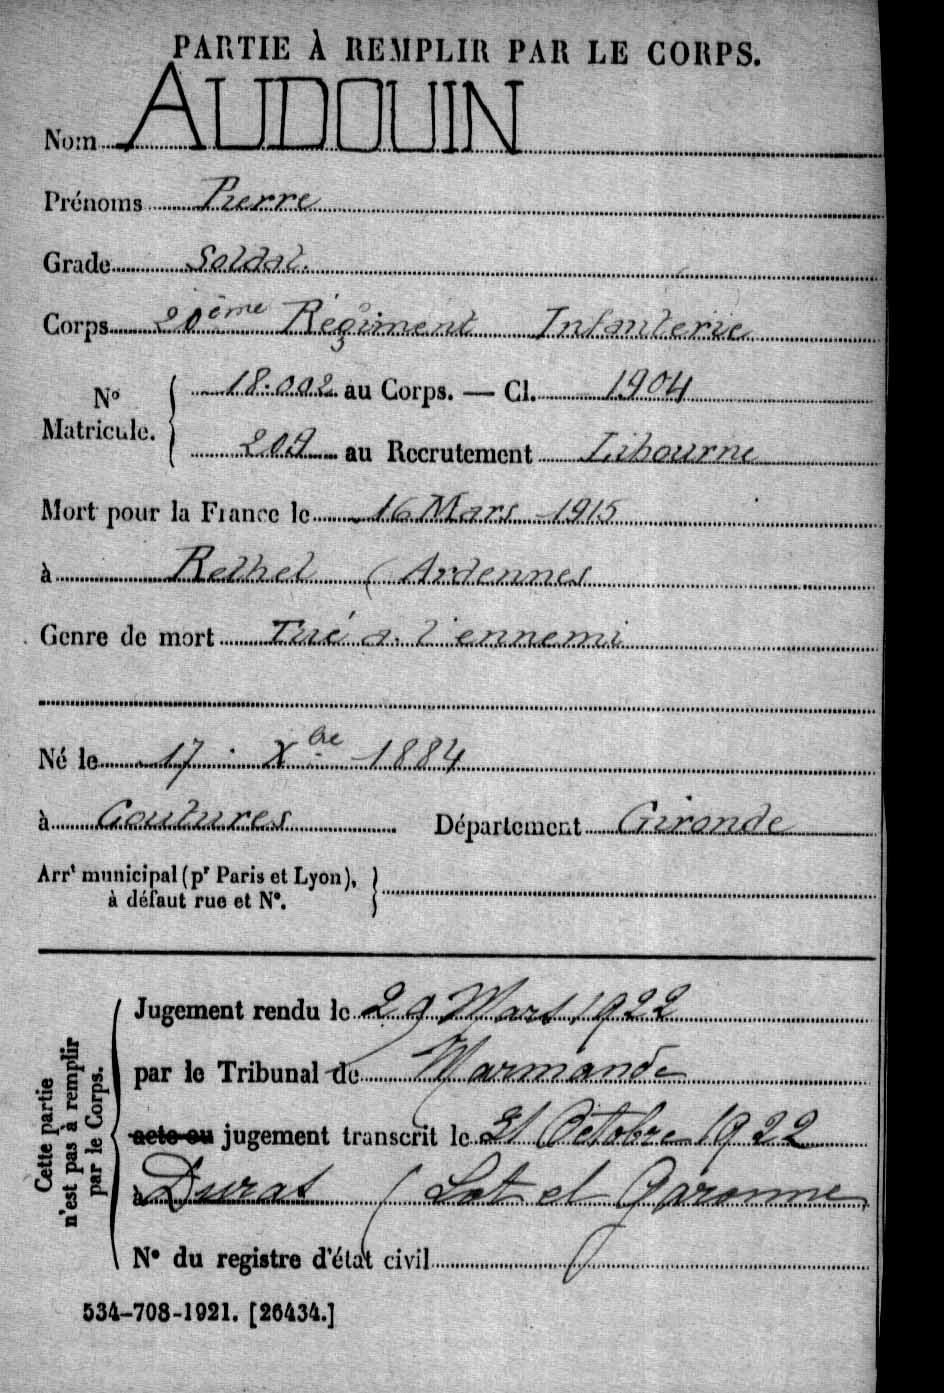 PARTIE À REMPLIR PAR LE CORPS.
Nom AUDOUIN
Prénoms Pierre
Grade Soldat.
Corps 20ème Régiment Infanterie
N° Matricule. 18.002 au Corps. — Cl. 1904
209 au Recrutement Libourne
Mort pour la France le 16 Mars 1915
à Rethel (Ardennes
Genre de mort Tué a l'ennemi
Né le 17 Xbre 1884
à Coutures Département Gironde
Arrt municipal (pr Paris et Lyon),
à défaut rue et N°.
Cette partie
n'est pas à remplir
par le Corps.
Jugement rendu le 29 Mars 1922
par le Tribunal de Marmande
acte ou jugement transcrit le 31 Octobre 1922
à Duras (Lot et Garonne)
N° du registre d'état civil
534-708-1921. [26434.]